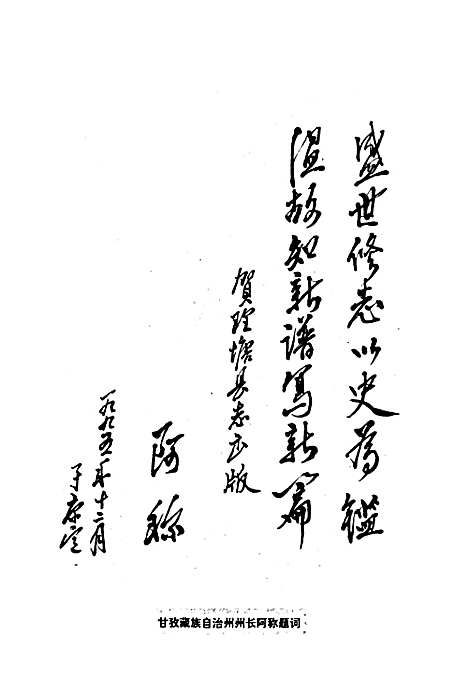 盛世修志以史为鑑
温故知新谱写新篇
贺理塘县志出版
阿称
一九九五年十二月
于康定
甘孜藏族自治州州长阿称题词